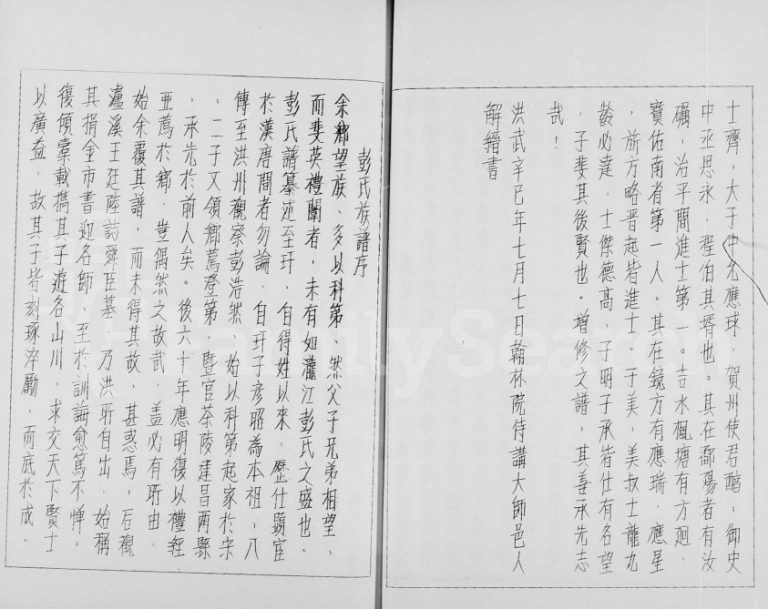 士齊，大子中允應球，賀州使君酷，御史
中丞思永，程伯其壻也。其在鄱陽者有汝
礪，治平間進士第一。吉水楓塘有方迥，
寶佑南省第一人。其在鏡方有應瑞，應星
，旂方略晋起皆進士。于美，美叔士龍九
齡必達，士傑德高，子明子承皆仕有名望
，子斐其後賢也。增修之譜，其善承先志
哉！
洪武辛巳年七月七日翰林院侍講大師邑人
解縉書
彭氏族譜序
余鄉望族，多以科第，然父子兄弟相望，
而斐英禮闈者，未有如瀧江彭氏之盛也，
彭氏譜纂述至玕，自得姓以來，歷仕顯宦
於漢唐間者勿論，自玕子彥昭為本祖，八
傳至洪州觀察彭浩然，始以科第起家於宋
，二子又領鄉薦登第，暨官茶陵建昌兩縣
，承先於前人矣。後六十年應明復以禮經
亞薦於鄉，豈偶然之故哉，蓋必有所由，
始余覆其譜，而未得其故，甚惑焉，石觀
瀘溪王廷陸誌舜臣墓，乃洪所自出，始稱
其捐金市書迎名師，至於訓誨愈篤不憚，
復傾橐載攜其子遊名山川，求交天下賢士
以廣益，故其子皆刻琢淬勵，而底於成。